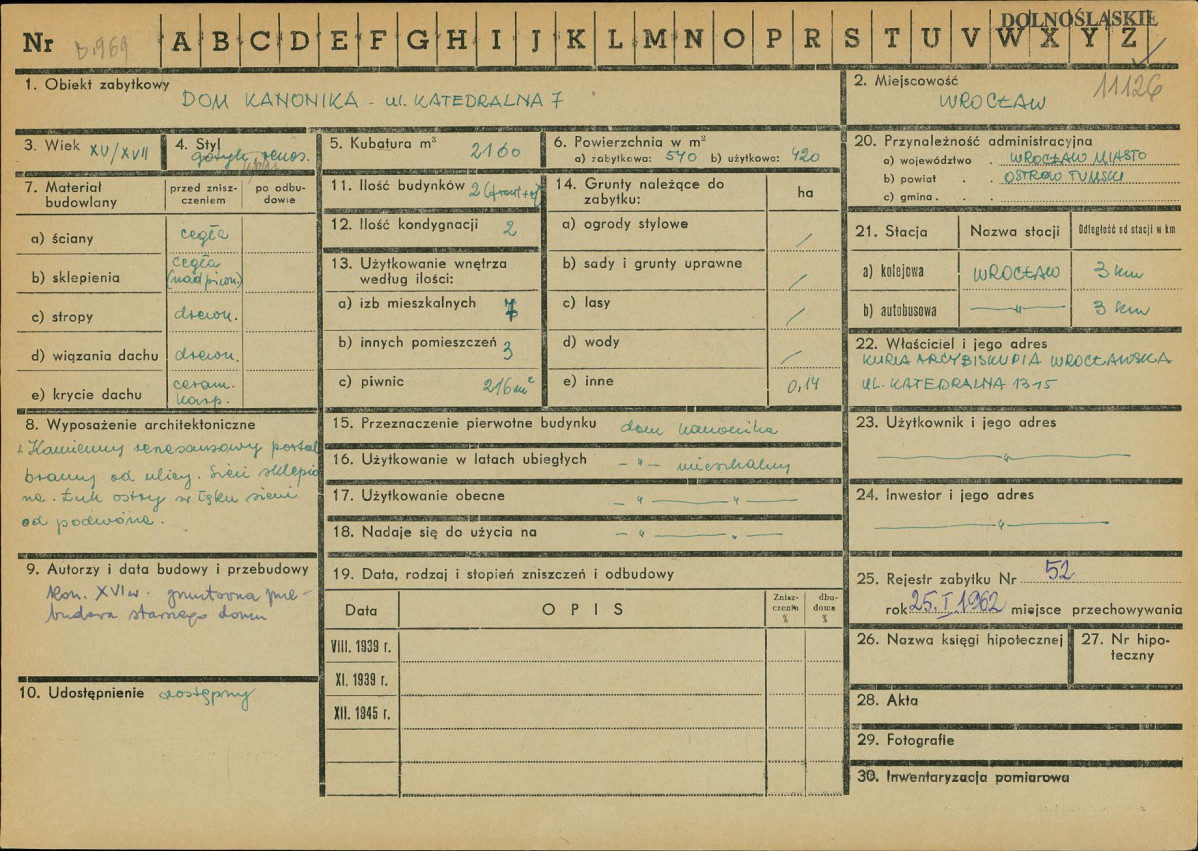 DOLNOŚLĄSKIE
Nr b.969 A B C D E F G H I J K L M N O P R S T U V W X Y Z
11126
1. Obiekt zabytkowy
DOM KANONIKA - ul. KATEDRALNA 7
2. Miejscowość
WROCŁAW
3. Wiek XV/XVII
4. Styl
gotyk renes.
5. Kubatura m³ 2160
6. Powierzchnia w m²
a) zabytkowa: 540 b) użytkowa: 420
7. Materiał budowlany
przed znisz-
czeniem
po odbu-
dowie
a) ściany cegła
b) sklepienia cegła
(nad piwn.)
c) stropy drewn.
d) wiązania dachu drewn.
e) krycie dachu ceram.
karp.
8. Wyposażenie architektoniczne
1. Kamienny renesansowy portal
bramy od ulicy. Sień sklepio
na. Łuk ostry w łęku sieni
od podwórza.
9. Autorzy i data budowy i przebudowy
kon. XVI w. gruntowna prze-
budowa starszego domu
10. Udostępnienie dostępny
11. Ilość budynków 2 (front+of)
12. Ilość kondygnacji 2
13. Użytkowanie wnętrza
według ilości:
a) izb mieszkalnych 7
b) innych pomieszczeń 3
c) piwnic 216 m²
14. Grunty należące do
zabytku:
ha
a) ogrody stylowe /
b) sady i grunty uprawne /
c) lasy /
d) wody /
e) inne 0,14
15. Przeznaczenie pierwotne budynku dom kanonika
16. Użytkowanie w latach ubiegłych - " - mieszkalny
17. Użytkowanie obecne - " - " -
18. Nadaje się do użycia na - " - " -
19. Data, rodzaj i stopień zniszczeń i odbudowy
Data
OPIS
Znisz-
czenia
%
dbu-
dowa
%
VIII. 1939 r.
XI. 1939 r.
XII. 1945 r.
20. Przynależność administracyjna
a) województwo . WROCŁAW MIASTO
b) powiat . . OSTRÓW TUMSKI
c) gmina . . .
21. Stacja
Nazwa stacji
Odległość od stacji w km
a) kolejowa WROCŁAW 3 km
b) autobusowa - " - 3 km
22. Właściciel i jego adres
KURIA ARCYBISKUPIA WROCŁAWSKA
UL. KATEDRALNA 13-15
23. Użytkownik i jego adres
- " -
24. Inwestor i jego adres
- " -
25. Rejestr zabytku Nr 52
rok 25. I 1962 miejsce przechowywania
26. Nazwa księgi hipotecznej
27. Nr hipo-
teczny
28. Akta
29. Fotografie
30. Inwentaryzacja pomiarowa